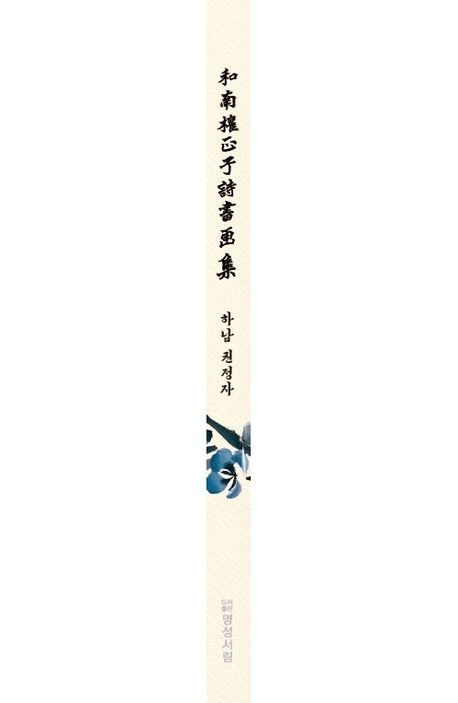 和南權正子詩書画集
하남 권정자
도서
출판
명성서림